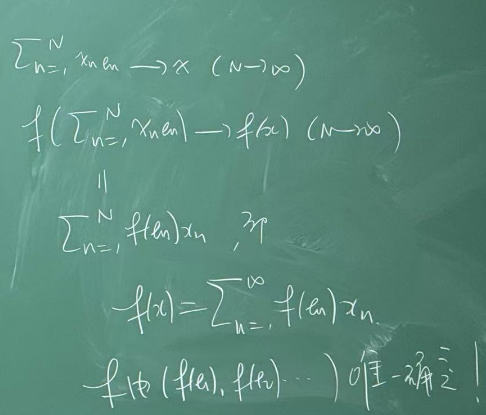 ∑_{n=1}^{N} xₙeₙ → x (N→∞)
f(∑_{n=1}^{N} xₙeₙ) → f(x) (N→∞)
||
∑_{n=1}^{N} f(eₙ)xₙ , 即
f(x) = ∑_{n=1}^{∞} f(eₙ)xₙ.
f由(f(e₁), f(e₂)⋯)唯一确定!